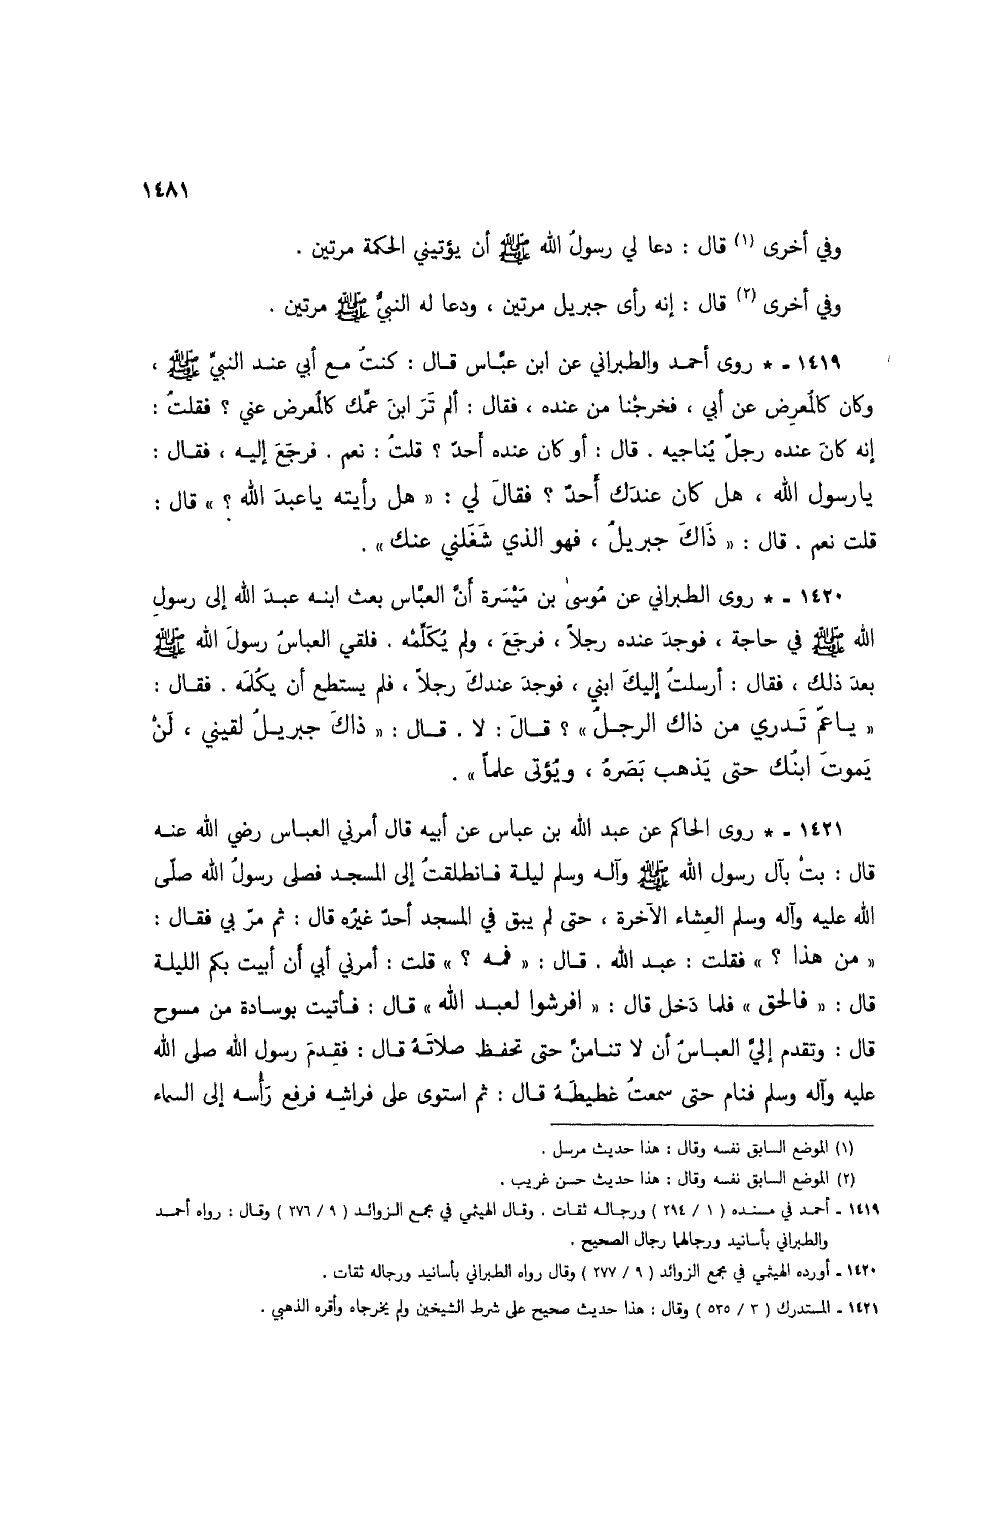 ١٤٨١
وفي أخرى (١) قال : دعا لي رسولُ الله ﷺ أن يؤتيني الحكمة مرتين .
وفي أخرى (٢) قال : إنه رأى جبريل مرتين ، ودعا له النبيُّ ﷺ مرتين .
١٤١٩ - * روى أحمد والطبراني عن ابن عبَّاس قال : كنتُ مع أبي عند النبيِّ ﷺ ،
وكان كالمُعرِض عن أبي ، فخرجْنا من عنده ، فقال : ألم تَرَ ابنَ عمِّك كالمُعرض عني ؟ فقلتُ :
إنه كانَ عنده رجلٌ يُناجيه . قال : أو كان عنده أَحدٌ ؟ قلتُ : نعم . فرجَعَ إليه ، فقال :
يارسول الله ، هل كان عندَك أَحدٌ ؟ فقالَ لي : « هل رأيته ياعبدَ الله ؟ » قال :
قلت نعم . قال : « ذَاكَ جبريلُ ، فهو الذي شَغَلني عنك » .
١٤٢٠ - * روى الطبراني عن مُوسىٰ بن مَيْسَرة أَنَّ العبَّاس بعث ابنه عبدَ الله إلى رسولِ
الله ﷺ في حاجة ، فوجدَ عنده رجلاً ، فرجَعَ ، ولم يُكَلِّمْه . فلقي العباسُ رسولَ الله ﷺ
بعدَ ذلك ، فقال : أرسلتُ إليكَ ابني ، فوجدَ عندكَ رجلاً ، فلم يستطع أن يكلِّمَه . فقال :
« ياعمِّ تَدري من ذاك الرجلُ » ؟ قالَ : لا . قال : « ذاكَ جبريلُ لقيني ، لَنْ
يَموتَ ابنُك حتى يَذهب بَصَرهُ ، ويُؤتى علماً » .
١٤٢١ - * روى الحاكم عن عبد الله بن عباس عن أبيه قال أمرني العباس رضي الله عنه
قال : بتْ بآل رسول الله ﷺ وآله وسلم ليلة فانطلقتُ إلى المسجد فصلى رسولُ الله صلّى
الله عليه وآله وسلم العِشاء الآخرة ، حتى لم يبق في المسجد أحدٌ غيرُه قال : ثم مرّ بي فقال :
« من هذا ؟ » فقلت : عبد الله . قال : « فمه ؟ » قلت : أمرني أبي أَن أبيت بكم الليلة
قال : « فالحق » فلما دَخل قال : « افرشوا لعبد الله » قال : فأتيت بوسادة من مسوح
قال : وتقدم إليَّ العباسُ أن لا تنامنَّ حتى تحفظ صلاتَهُ قال : فقدمَ رسول الله صلى الله
عليه وآله وسلم فنام حتى سمعتُ غطيطَهُ قال : ثم استوى على فراشِه فرفع رَأسه إلى السماء
(١) الموضع السابق نفسه وقال : هذا حديث مرسل .
(٢) الموضع السابق نفسه وقال : هذا حديث حسن غريب .
١٤١٩ - أحمد في مسنده ( ١ / ٢٩٤ ) ورجاله ثقات . وقال الهيثمي في مجمع الزوائد ( ٩ / ٢٧٦ ) وقال : رواه أحمد
والطبراني بأسانيد ورجالها رجال الصحيح .
١٤٢٠ - أورده الهيثمي في مجمع الزوائد ( ٩ / ٢٧٧ ) وقال رواه الطبراني بأسانيد ورجاله ثقات .
١٤٢١ - المستدرك ( ٣ / ٥٣٥ ) وقال : هذا حديث صحيح على شرط الشيخين ولم يخرجاه وأقره الذهبي .